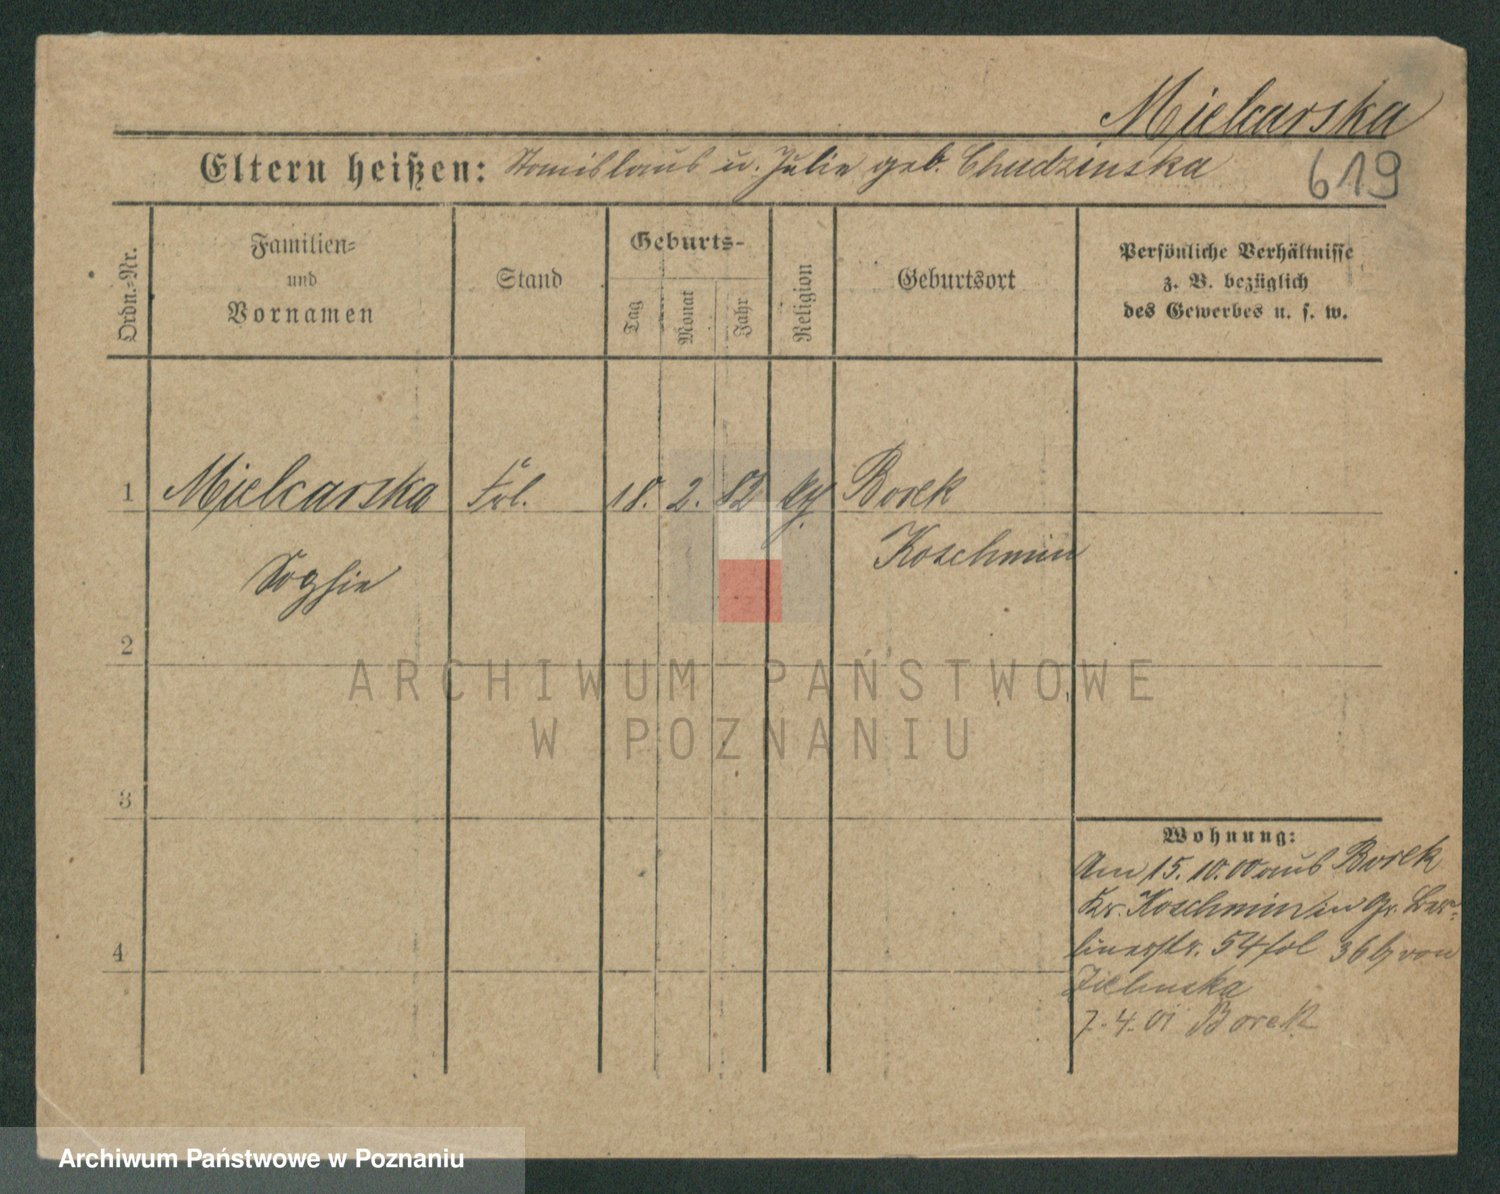 Mielcarska
Eltern heißen: Stanislaus u. Julie geb. Chudzinska
619
Ordn.-Nr.
Familien-
und
Vornamen
Stand
Geburts-
Tag
Monat
Jahr
Religion
Geburtsort
Persönliche Verhältnisse
z. B. bezüglich
des Gewerbes u. s. w.
1 Mielcarska Frl. 18. 2. 82 Borek
Koschmin
Sophie
2
ARCHIWUM PAŃSTWOWE
W POZNANIU
3
Wohnung:
Am 15. 10. 00 aus Borek
Kr. Koschmin in Gr. Ber-
linerstr. 54 36 von
Zielinska
7. 4. 01 Borek
4
Archiwum Państwowe w Poznaniu